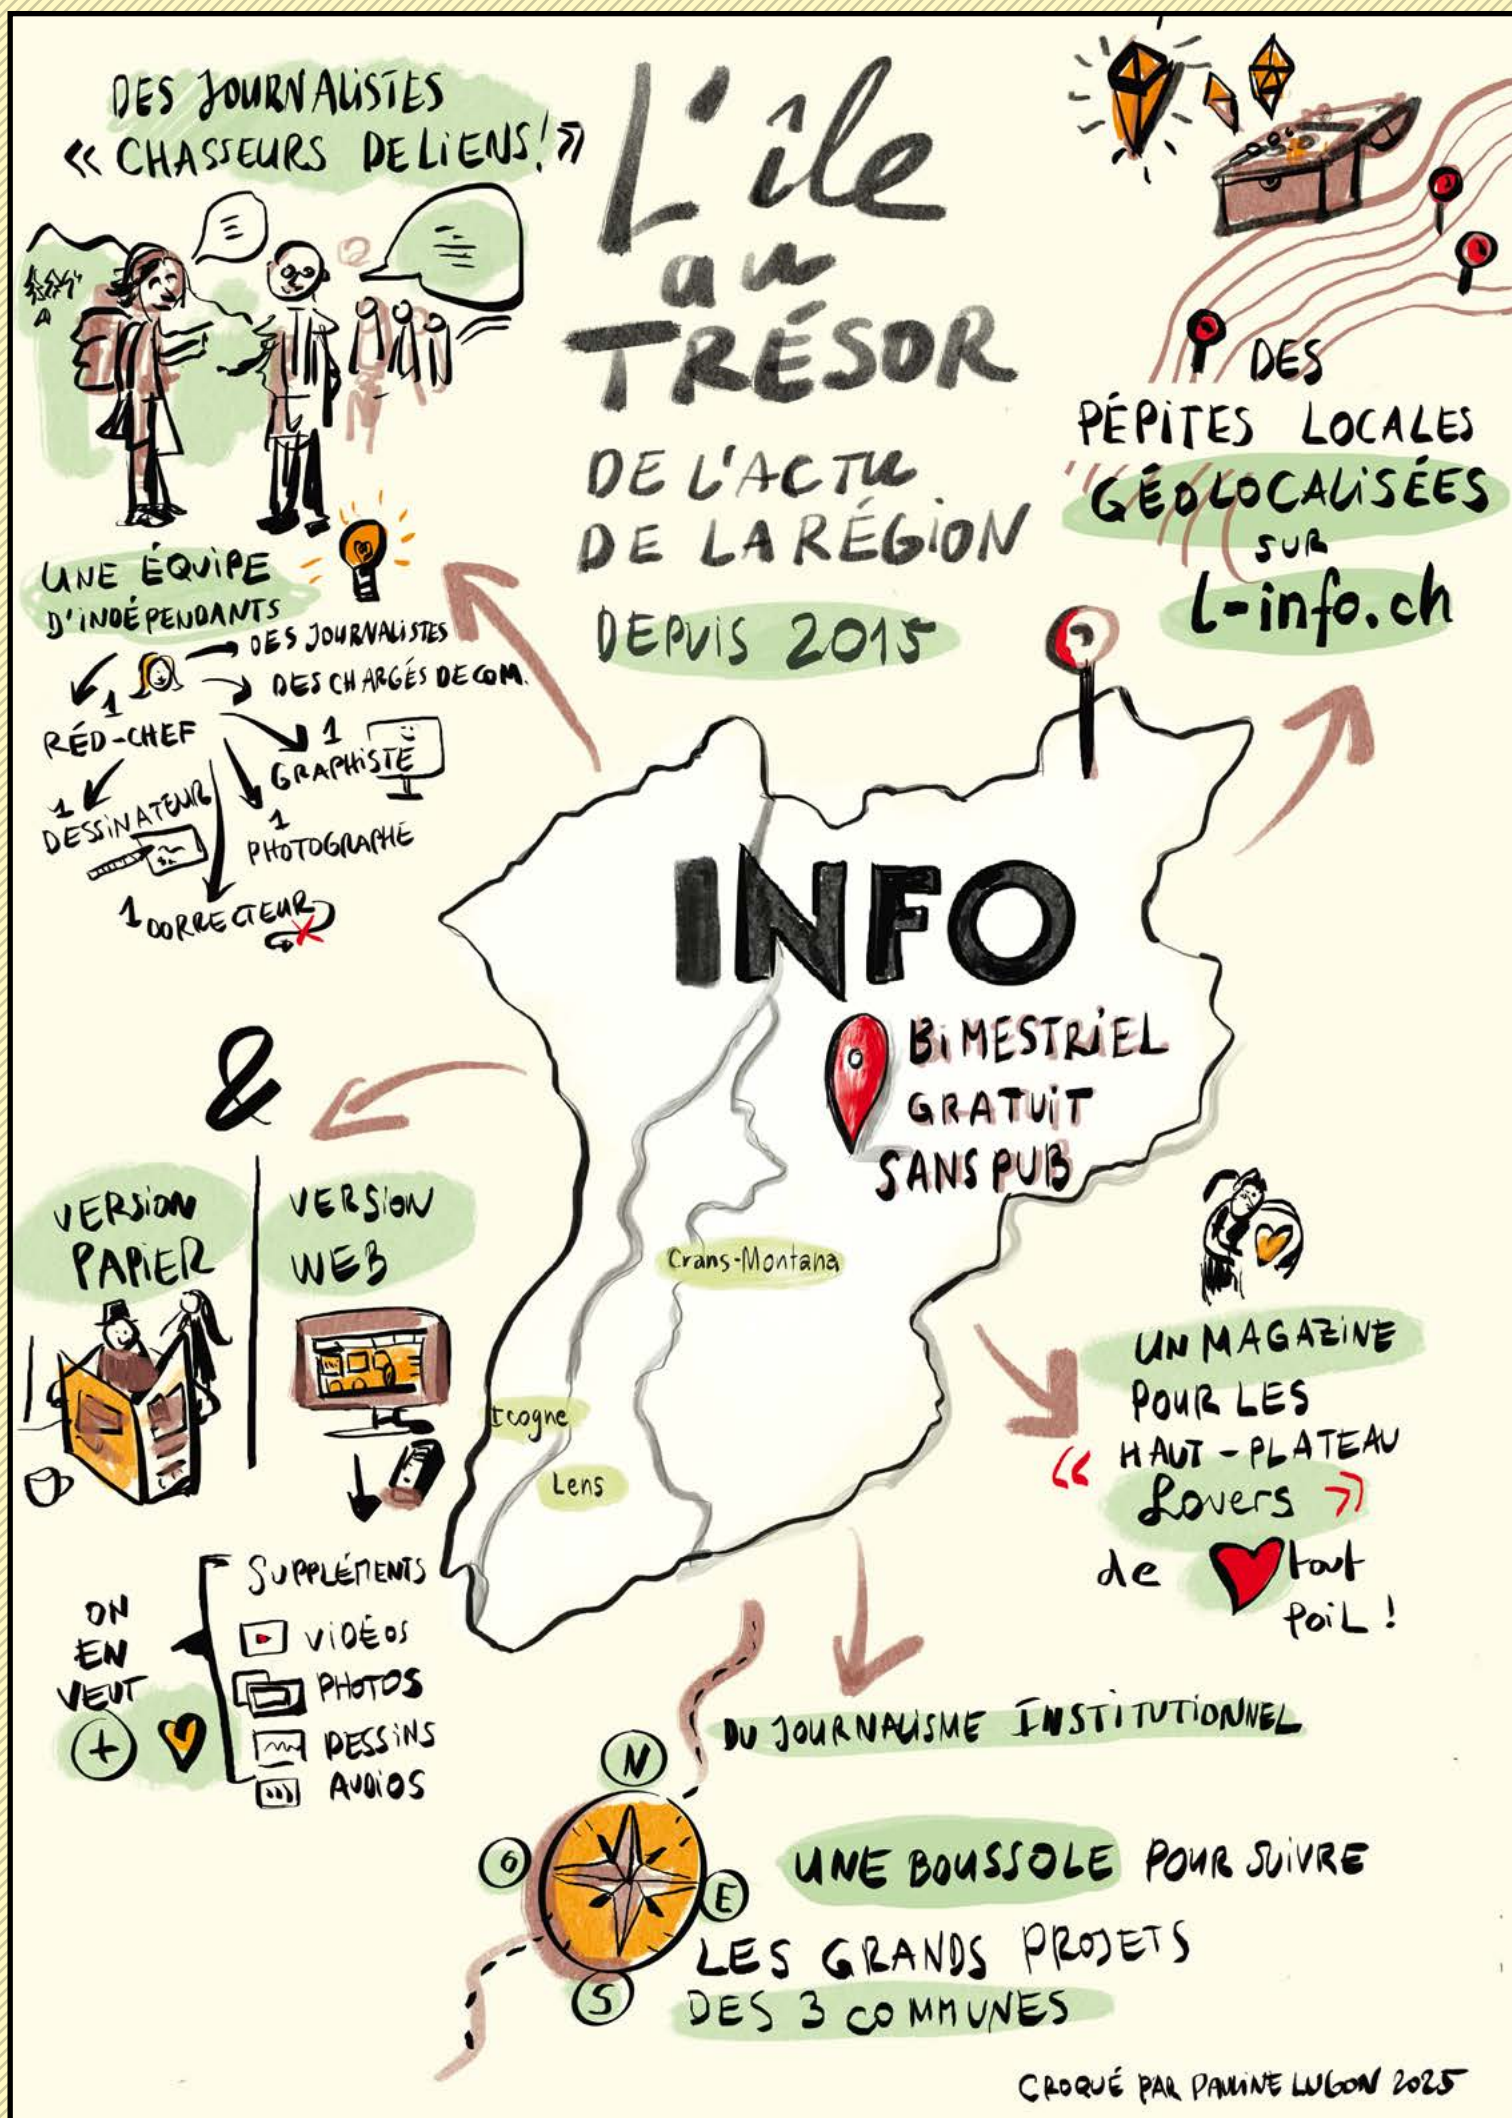 DES JOURNALISTES
« CHASSEURS DE LIENS! »
L'île
au
TRÉSOR
DE L'ACTU
DE LA RÉGION
DEPUIS 2015
DES
PÉPITES LOCALES
GÉOLOCALISÉES
SUR
l-info.ch
UNE ÉQUIPE
D'INDÉPENDANTS
DES JOURNALISTES
DES CHARGÉS DE COM.
1
RÉD-CHEF
1
GRAPHISTE
1
DESSINATEUR
1
PHOTOGRAPHE
1 CORRECTEUR
INFO
BIMESTRIEL
GRATUIT
SANS PUB
Crans-Montana
Icogne
Lens
&
VERSION
PAPIER
VERSION
WEB
ON
EN
VEUT
+
SUPPLÉMENTS
VIDÉOS
PHOTOS
DESSINS
AUDIOS
UN MAGAZINE
POUR LES
« HAUT-PLATEAU
Lovers »
de tout
poil !
DU JOURNALISME INSTITUTIONNEL
N
O
E
S
UNE BOUSSOLE POUR SUIVRE
LES GRANDS PROJETS
DES 3 COMMUNES
CROQUÉ PAR PAULINE LUGON 2025